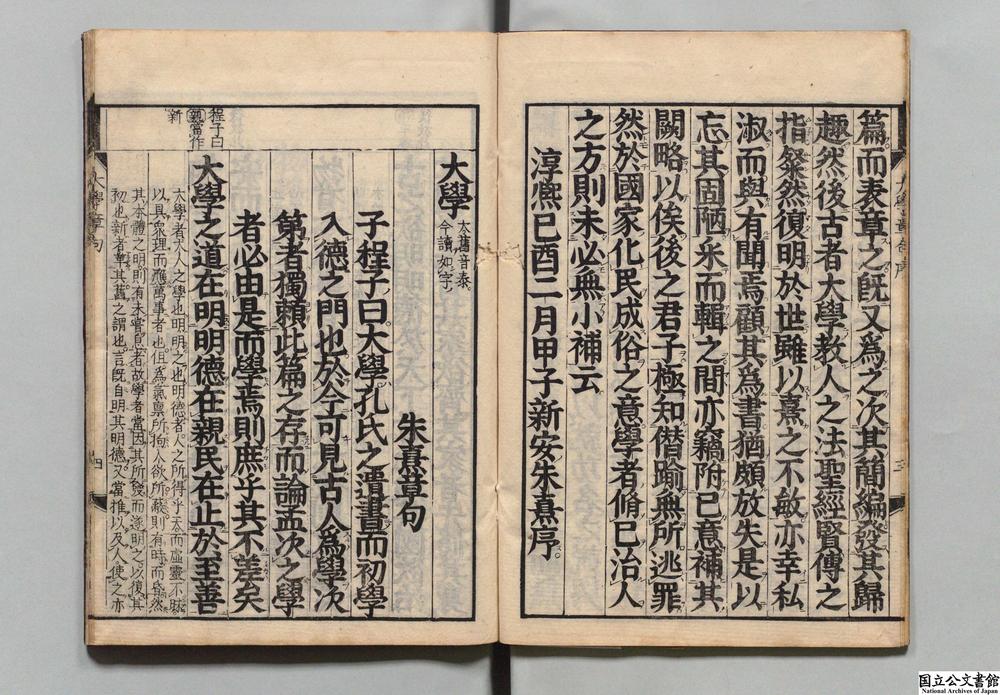 篇而表章之既又爲之次其簡編發其歸
趣然後古者大學教人之法聖經賢傳之
指粲然復明於世雖以熹之不敏亦幸私
淑而與有聞焉顧其爲書猶頗放失是以
忘其固陋采而輯之間亦竊附己意補其
闕略以俟後之君子極知僭踰無所逃罪
然於國家化民成俗之意學者脩己治人
之方則未必無小補云
淳熈己酉二月甲子新安朱熹序
大學
大舊音泰
今讀如字
朱熹章句
子程子曰大學孔氏之遺書而初學
入德之門也於今可見古人爲學次
第者獨賴此篇之存而論孟次之學
者必由是而學焉則庶乎其不差矣
大學之道在明明德在親民在止於至善
程子曰
親當作
新
大學者大人之學也明明之也明德者人之所得乎天而虛靈不昧
以具衆理而應萬事者也但爲氣稟所拘人欲所蔽則有時而昏然
其本體之明則有未嘗息者故學者當因其所發而遂明之以復其
初也新者革其舊之謂也言既自明其明德又當推以及人使之亦
大學章句
四
三
国立公文書館
National Archives of Japan